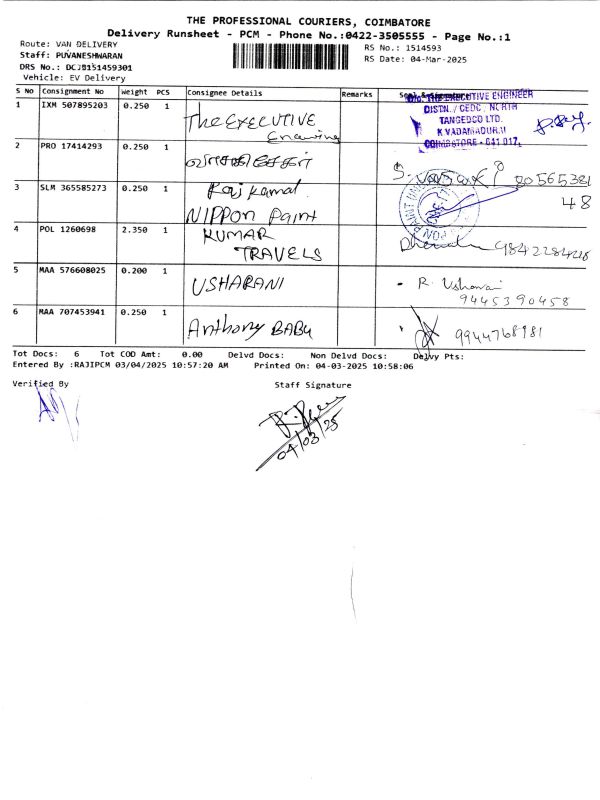 THE PROFESSIONAL COURIERS, COIMBATORE
Delivery Runsheet - PCM - Phone No.:0422-3505555 - Page No.:1
Route: VAN DELIVERY
Staff: PUVANESHWARAN
DRS No.: DCJ0151459301
Vehicle: EV Delivery
RS No.: 1514593
RS Date: 04-Mar-2025
S No Consignment No Weight PCS Consignee Details Remarks Seal & Signature
1 IXM 507895203 0.250 1 The EXECUTIVE
O/o. THE EXECUTIVE ENGINEER
DISTN. / CEDC / NORTH
TANGEDCO LTD.
K.VADAMADURAI
COIMBATORE - 641 017.
2 PRO 17414293 0.250 1
3 SLM 365585273 0.250 1 Raj kamal
NIPPON Paint
48
4 POL 1260698 2.350 1 KUMAR
TRAVELS
5 MAA 576608025 0.200 1 USHARANI
R. Usharani
9445390458
6 MAA 707453941 0.250 1 Anthony BABU
9944768981
Tot Docs: 6 Tot COD Amt: 0.00 Delvd Docs: Non Delvd Docs: Delvy Pts:
Entered By :RAJIPCM 03/04/2025 10:57:20 AM Printed On: 04-03-2025 10:58:06
Verified By Staff Signature
04/03/25